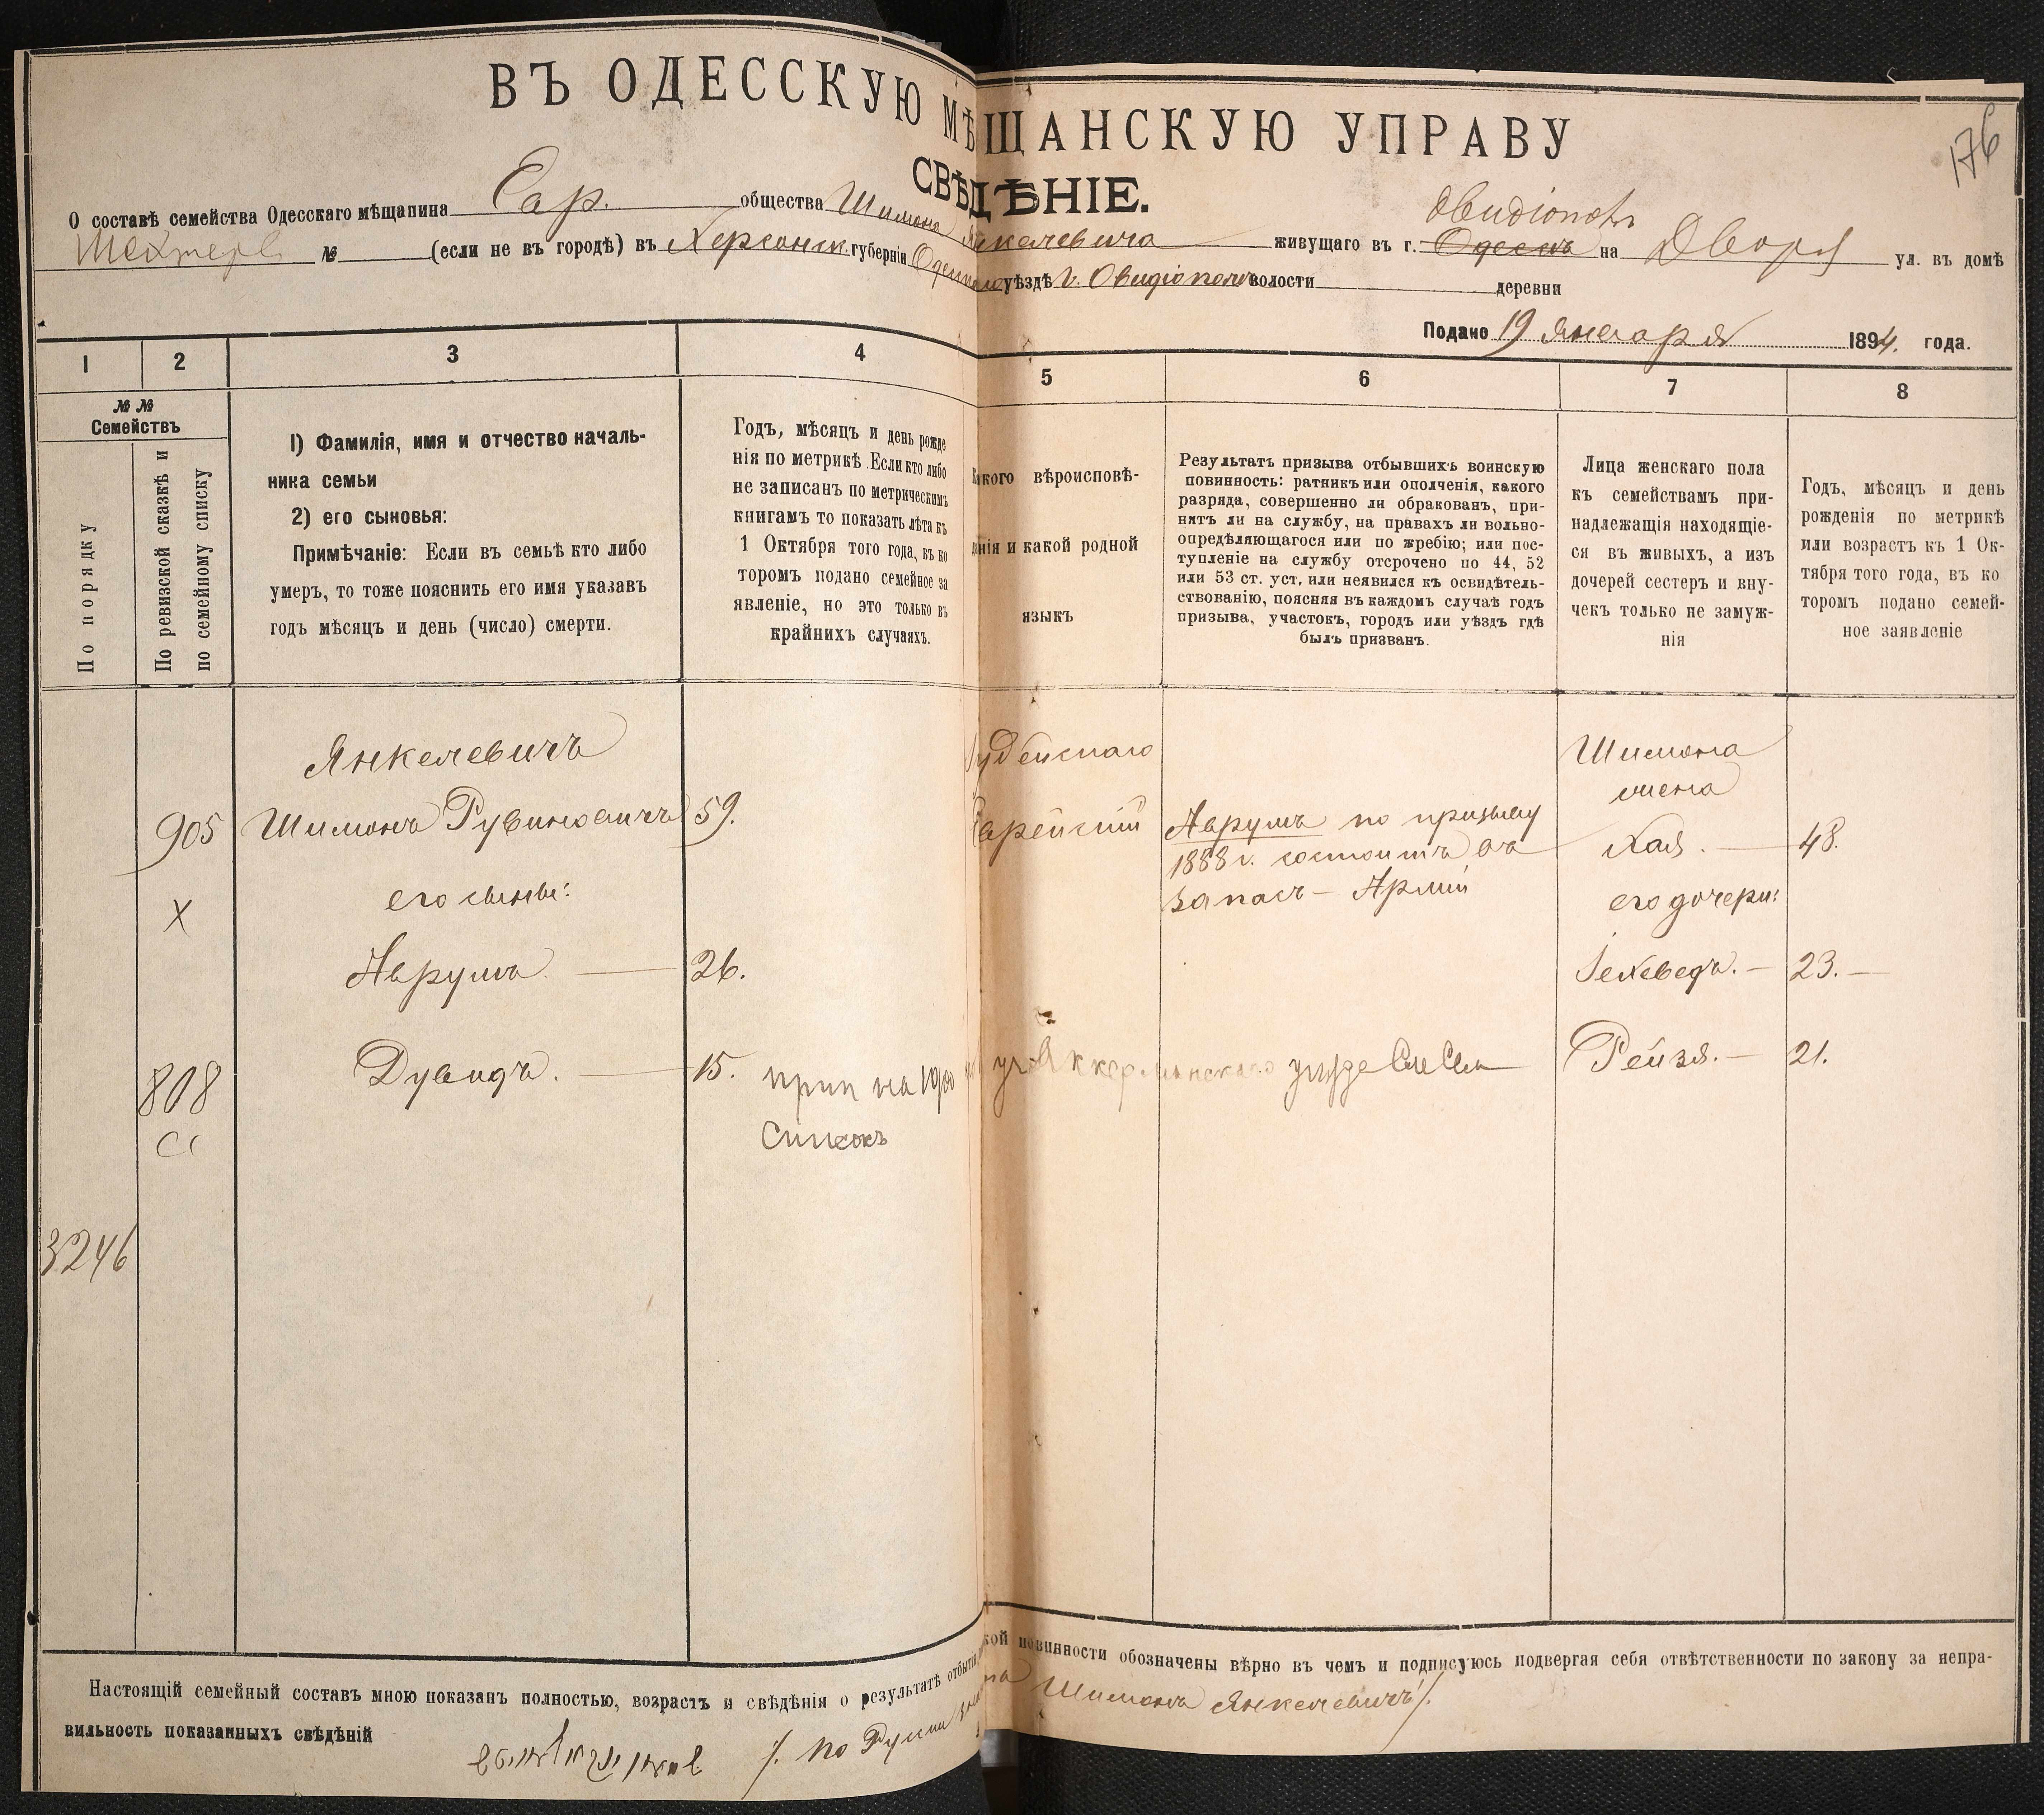 176
ВЪ ОДЕССКУЮ МѢЩАНСКУЮ УПРАВУ
СВѢДѢНІЕ.
О составѣ семейства Одесскаго мѣщанина Евр. общества Шимона Янкелевича живущаго въ г. Одессѣ Овидіополь на Двор ул. въ домѣ
Шехтера № (если не въ городѣ) въ Херсонск. губерніи Одесскаго уѣздѣ г. Овидіополь волости деревни
Подано 19 января 1894. года.
1 2 3 4 5 6 7 8
№ № Семействъ
По порядку
По ревизской сказкѣ и по семейному списку
1) Фамилія, имя и отчество началь-
ника семьи
2) его сыновья:
Примѣчаніе: Если въ семьѣ кто либо
умеръ, то тоже пояснить его имя указавъ
годъ мѣсяцъ и день (число) смерти.
Годъ, мѣсяцъ и день рожде
нія по метрикѣ. Если кто либо
не записанъ по метрическимъ
книгамъ то показать лѣта къ
1 Октября того года, въ ко
торомъ подано семейное за
явленіе, но это только въ
крайнихъ случаяхъ.
Какого вѣроисповѣ-
данія и какой родной
языкъ
Результатъ призыва отбывшихъ воинскую
повинность: ратникъ или ополченія, какого
разряда, совершенно ли обракованъ, при-
нятъ ли на службу, на правахъ ли вольно-
опредѣляющагося или по жребію; или пос-
тупленіе на службу отсрочено по 44, 52
или 53 ст. уст. или неявился къ освидѣтель-
ствованію, поясняя въ каждомъ случаѣ годъ
призыва, участокъ, городъ или уѣздъ гдѣ
былъ призванъ.
Лица женскаго пола
къ семействамъ при-
надлежащія находящіе-
ся въ живыхъ, а изъ
дочерей сестеръ и вну-
чекъ только не замуж-
нія
Годъ, мѣсяцъ и день
рожденія по метрикѣ
или возрастъ къ 1 Ок-
тября того года, въ ко
торомъ подано семей-
ное заявленіе
Янкелевичъ Іудейскаго Шимона
жена
905 Шимонъ Рувиновичъ 59. Еврейскій Аврумъ по призыву
1888 г. состоитъ въ Хая. 48.
X его сыновья: запасѣ Арміи его дочери:
Аврумъ. 26. Іехеведъ. 23.
808 Дувидъ. 15. прип на 1900 уч Аккерманскаго уѣзда Рейзя. 21.
Списокъ
3246
Настоящій семейный составъ мною показанъ полностью, возрастъ и свѣдѣнія о результатѣ отбытія воинской повинности обозначены вѣрно въ чемъ и подписуюсь подвергая себя отвѣтственности по закону за непра-
вильность показанныхъ свѣдѣній
По Русски Шимонъ Янкелевичъ